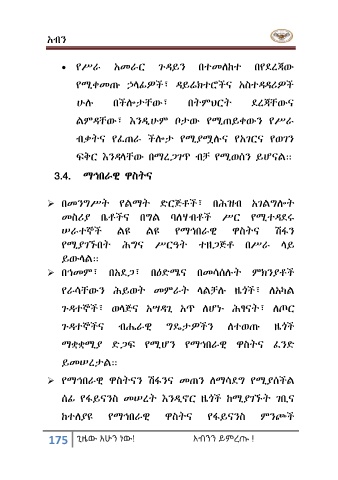 አብን
• የሥራ አመራር ጉዳይን በተመለከተ በየደረጃው
የሚቀመጡ ኃላፊዎች፣ ዳይሬክተሮችና አስተዳዳሪዎች
ሁሉ በችሎታቸው፣ በትምህርት ደረጃቸውና
ልምዳቸው፣ እንዲሁም ቦታው የሚጠይቀውን የሥራ
ብቃትና የፈጠራ ችሎታ የሚያሟሉና የአገርና የወገን
ፍቅር እንዳላቸው በማረጋገጥ ብቻ የሚወሰን ይሆናል።
3.4. ማኅበራዊ ዋስትና
➢ በመንግሥት የልማት ድርጅቶች፣ በሕዝብ አገልግሎት
መስሪያ ቤቶችና በግል ባለሃብቶች ሥር የሚተዳደሩ
ሠራተኞች ልዩ ልዩ የማኅበራዊ ዋስትና ሽፋን
የሚያገኙበት ሕግና ሥርዓት ተዘጋጅቶ በሥራ ላይ
ይውላል።
➢ በኅመም፣ በአደጋ፣ በዕድሜና በመሳሰሉት ምክንያቶች
የራሳቸውን ሕይወት መምራት ላልቻሉ ዜጎች፣ ለአካል
ጉዳተኞች፣ ወላጅና አሣዳጊ አጥ ለሆኑ ሕፃናት፣ ለጦር
ጉዳተኞችና ብሔራዊ ግዴታዎችን ለተወጡ ዜጎች
ማቋቋሚያ ድጋፍ የሚሆን የማኅበራዊ ዋስትና ፈንድ
ይመሠረታል።
➢ የማኅበራዊ ዋስትናን ሽፋንና መጠን ለማሳደግ የሚያስችል
ሰፊ የፋይናንስ መሠረት እንዲኖር ዜጎች ከሚያገኙት ገቢና
ከተለያዩ የማኅበራዊ ዋስትና የፋይናንስ ምንጮች
175 ጊዜው አሁን ነው! አብንን ይምረጡ !